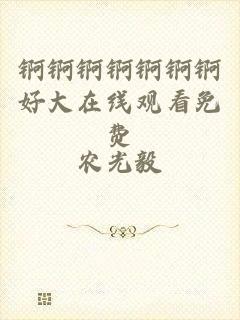 锕锕锕锕锕锕锕
好大在线观看免
费
农光毅